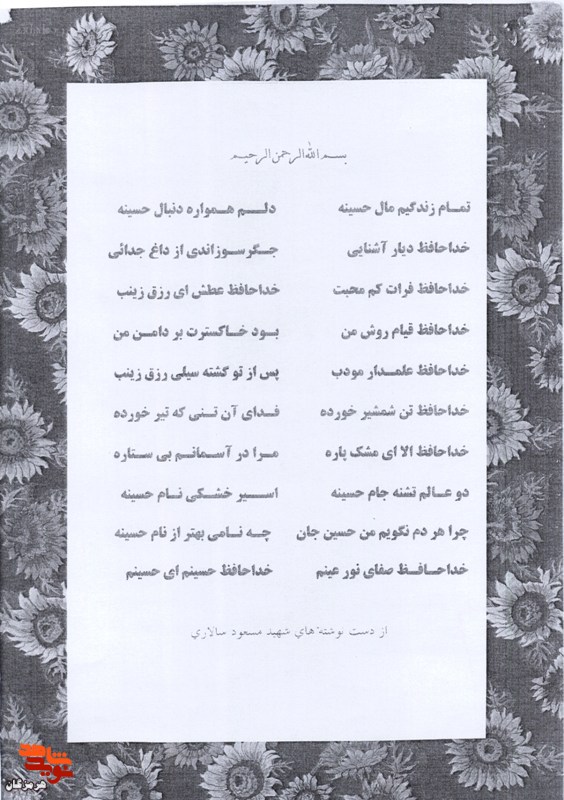 بسم الله الرحمن الرحیم
تمام زندگیم مال حسینه دلم همواره دنبال حسینه
خداحافظ دیار آشنایی جگرسوزاندی از داغ جدائی
خداحافظ فرات کم محبت خداحافظ عطش ای رزق زینب
خداحافظ قیام روش من بود خاکسترت بر دامن من
خداحافظ علمدار مودب پس از تو گشته سیلی رزق زینب
خداحافظ تن شمشیر خورده فدای آن تنی که تیر خورده
خداحافظ الا ای مشک پاره مرا در آسمانم بی ستاره
دو عالم تشنه جام حسینه اسیر خشکی نام حسینه
چرا هر دم نگویم من حسین جان چه نامی بهتر از نام حسینه
خداحافظ صفای نور عینم خداحافظ حسینم ای حسینم
از دست نوشته های شهید مسعود سالاری
نوید شاهد
هرمزگان